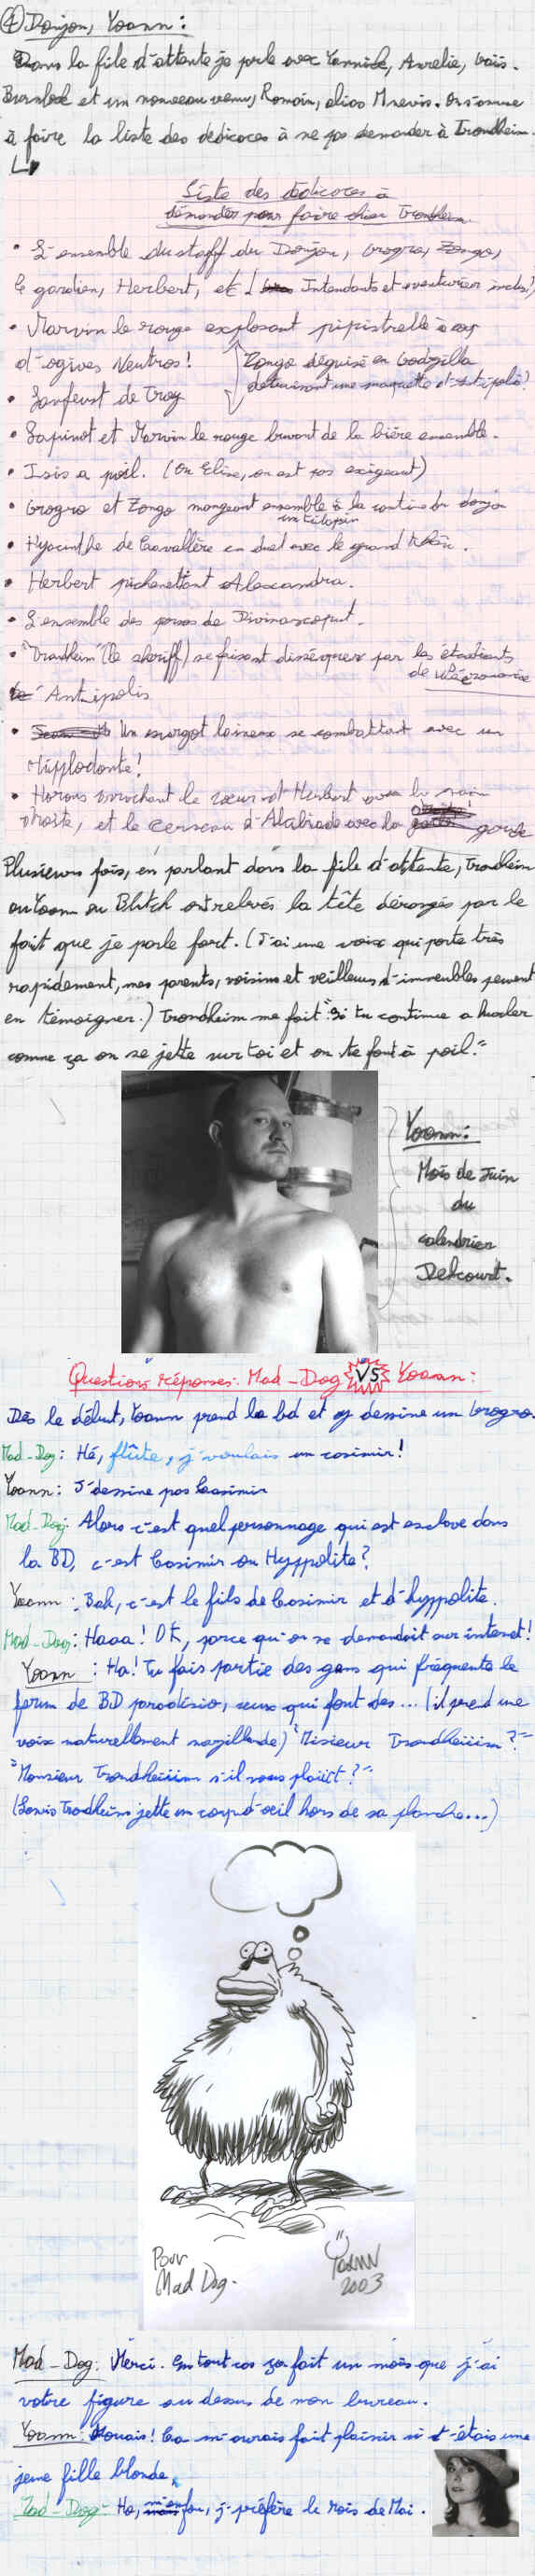 ④ Donjon, Yoann :
Dans la file d'attente je parle avec Yannick, Aurelie, Loïs.
et un nouveau venu, Romain, alias Mnevis. On s'amuse
à faire la liste des dédicaces à ne pas demander à Trondheim.
Liste des dédicaces à
demander pour faire chier Trondheim
• L'ensemble du staff du Donjon, Grogro, Zongo,
le gardien, Herbert, et ! Intendants et aventurier inclus!)
• Marvin le rouge explosant pipistrelle à coup
d'ogives Neutros! Zongo déguisé en Godzilla
détruisant une maquette d'Antipolis!
• Lanfeust de Troy
• Lapinot et Marvin le rouge buvant de la bière ensemble.
• Isis a poil. (Ou Elise, on est pas exigeant)
• Grogro et Zongo mangeant ensemble à la cantine du donjon
• Hyacinthe de Cavallère en duel avec le grand Khân.
• Herbert pichenettant Alexandra.
• L'ensemble des persos de Divinascopus.
• "Trondheim" (le sheriff) se faisant disséquer par les étudiants
de nécromancie
Antipolis
• Un escargot laineux se combattant avec un
Hipplodonte!
• Horous arrachant le coeur d'Herbert avec la main
droite, et le cerveau d'Alcibiade avec la gauche
Plusieurs fois, en parlant dans la file d'attente, Trondheim
ou Yoann ou Blutch ont relevés la tête dérangés par le
fait que je parle fort. (J'ai une voix qui porte très
rapidement, mes parents, voisins et veilleurs d'immeubles peuvent
en témoigner.) Trondheim me fait "Si tu continue a hurler
comme ça on se jette sur toi et on te fout à poil."
Yoann :
Mois de Juin
du
calendrier
Delcourt.
Questions réponses : Mad-Dog VS Yoann :
Dès le début, Yoann prend la bd et y dessine un Grogro.
Mad-Dog : Hé, flûte, j'voulais un casimir!
Yoann : J'dessine pas Casimir
Mad-Dog : Alors c'est quel personnage qui est esclave dans
la BD, c'est Casimir ou Hyppolite?
Yoann : Bah, c'est le fils de Casimir et d'hyppolite.
Mad-Dog : Haaa! OK, parce qu'on se demandait sur internet!
Yoann : Ha! Tu fais partie des gens qui fréquente le
forum de BD paradisio, ceux qui font des... (il prend une
voix naturellement nasillarde) "Misieur Trondheiiim ?"
"Monsieur Trondheiiim s'il vous plaiiit ?"
(Lewis Trondheim jette un coup d'oeil hors de sa planche...)
Pour
Mad Dog.
Yoann
2003
Mad-Dog : Merci. En tout cas ça fait un mois que j'ai
votre figure au dessus de mon bureau.
Yoann : Mouais! Ca m'aurais fait plaisir si t'étais une
jeune fille blonde.
Mad-Dog : Ho, m'en fou, j'préfère le mois de Mai.